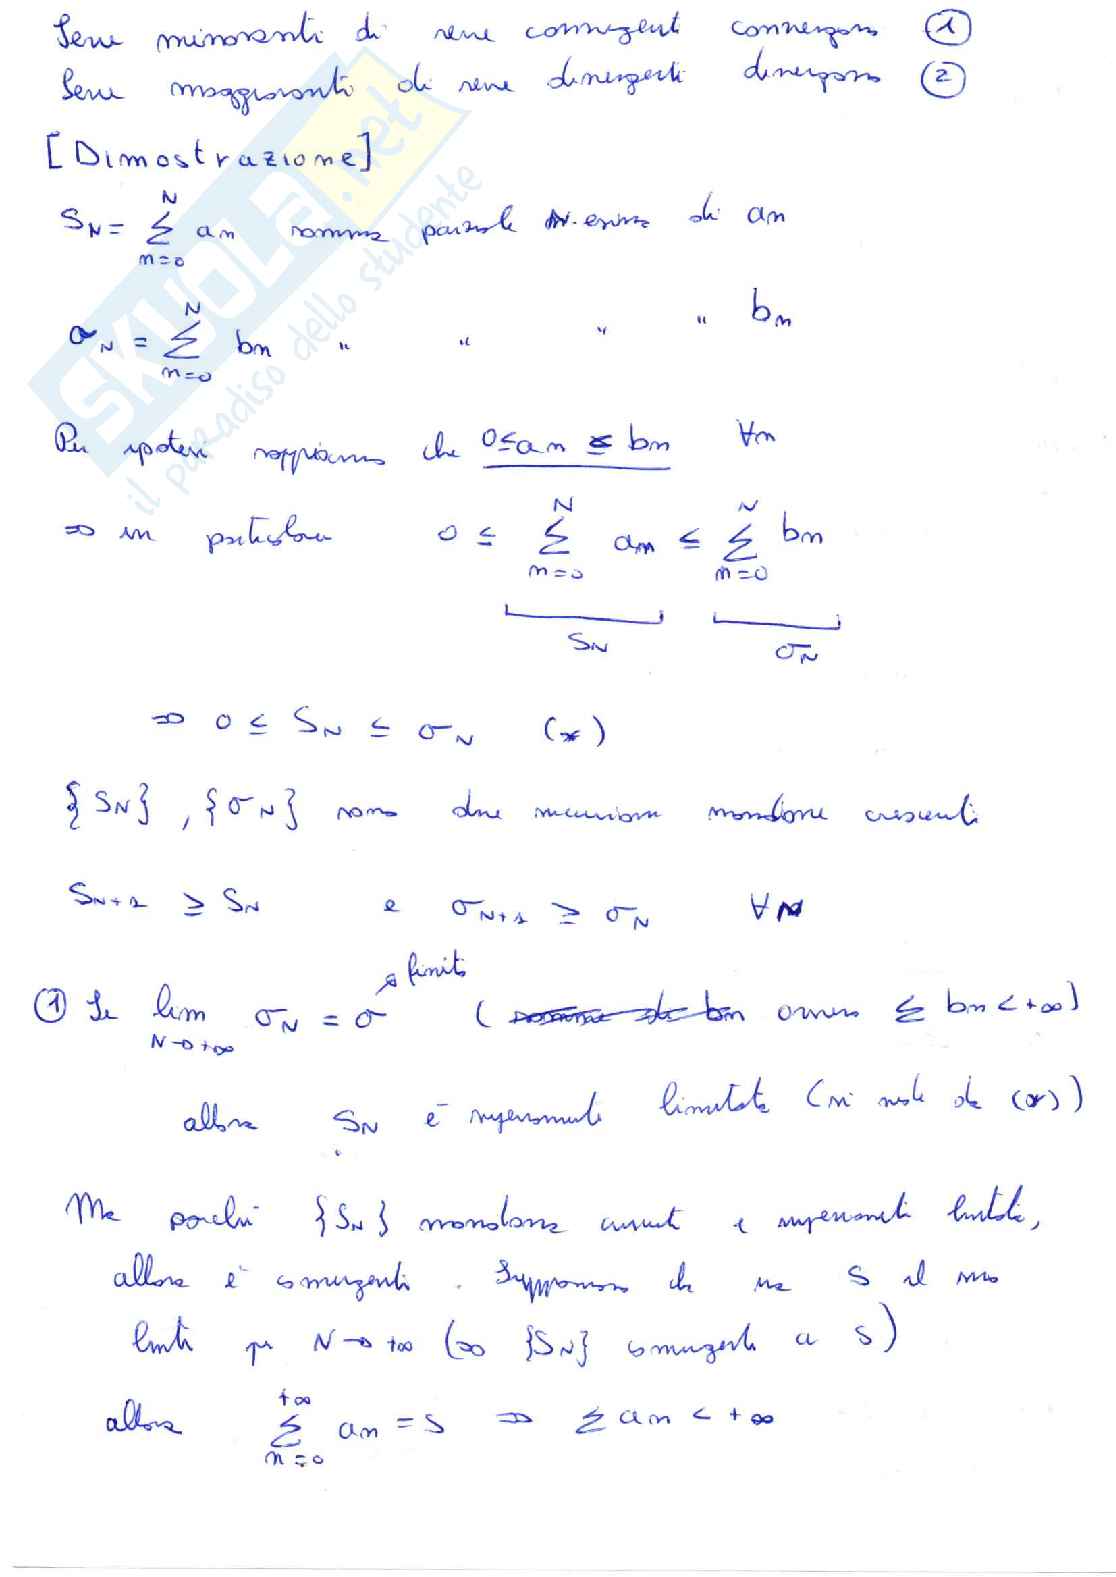 Serie minoranti di serie convergenti convergono ①
Serie maggioranti di serie divergenti divergono ②
[Dimostrazione]
S_N = ∑_{n=0}^{N} a_n somma parziale N-esima di a_n
σ_N = ∑_{n=0}^{N} b_n " " " " b_n
Per ipotesi sappiamo che 0 ≤ a_n ≤ b_n ∀n
⇒ in particolare 0 ≤ ∑_{n=0}^{N} a_n ≤ ∑_{n=0}^{N} b_n
S_N σ_N
⇒ 0 ≤ S_N ≤ σ_N (*)
{S_N}, {σ_N} sono due successioni monotone crescenti
S_{N+1} ≥ S_N e σ_{N+1} ≥ σ_N ∀N
finito
① Se lim_{N→+∞} σ_N = σ ( ovvero ∑ b_n < +∞)
allora S_N è superiormente limitata (si vede da (*))
Ma poiché {S_N} monotona crescente e superiormente limitata,
allora è convergente. Supponiamo che sia S il suo
limite per N→+∞ (⇒ {S_N} convergente a S)
allora ∑_{n=0}^{+∞} a_n = S ⇒ ∑ a_n < +∞
SKUOLA.net
il paradiso dello studente